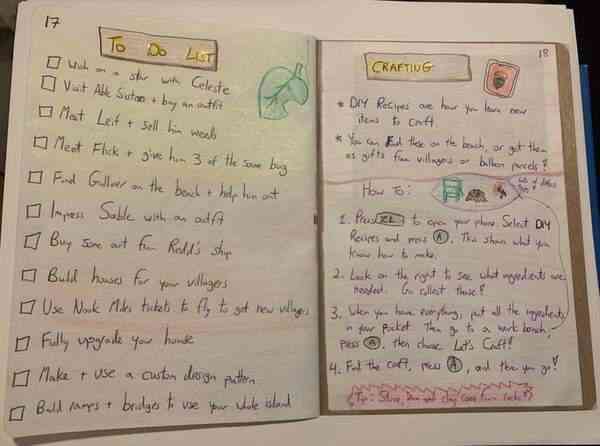 17
To Do List
Wish on a star with Celeste
Visit Able Sisters + buy an outfit
Meet Leif + sell him weeds
Meet Flick + give him 3 of the same bug
Find Gulliver on the beach + help him out
Impress Sable with an outfit
Buy some art from Redd's ship
Build houses for your villagers
Use Nook Miles tickets to fly to get new villagers
Fully upgrade your house
Make + use a custom design pattern
Build ramps + bridges to use your whole island
18
CRAFTING
* DIY Recipes are how you learn new
items to craft.
* You can find these on the beach, or get them
as gifts from villagers or balloon parcels!
How To:
1. Press ZL to open your phone. Select DIY
Recipes and press A. This shows what you
know how to make.
2. Look on the right to see what ingredients are
needed. Go collect those!
3. When you have everything, put all the ingredients
in your pocket. Then go to a work bench,
press A, then choose Let's Craft!
4. Find the craft, press A, and there you go!
Tip: Stone, iron and clay come from rocks!